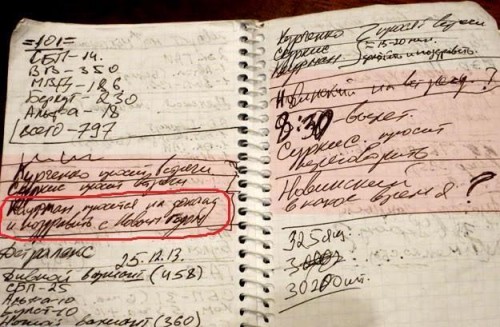 =101=
СБП-14.
ВВ-350
МВД-186
Беркут-230
Альфа-18
Всего-797
Курченко просит встречи
Суркис просит встречи
Клюрман просится на доклад
и поздравить с Новым годом
25.12.13.
Дневной вариант (458)
СБП-25
Альфа-10
Беркут-10
Ночной вариант (360)
Курченко
Суркис
просят встречи
15-20 мин.
поздравить
Новинский на встречу?
8:30 вылет.
Суркис просит
переговорить
Новинский
в какое время?
325
30200шт.